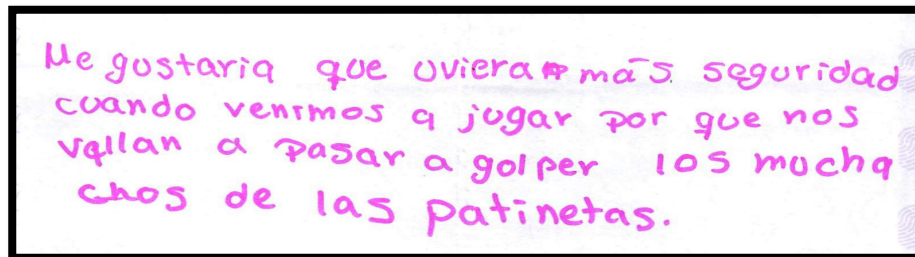 Me gustaria que uviera más seguridad
cuando venimos a jugar por que nos
vallan a pasar a golper los mucha
chos de las patinetas.